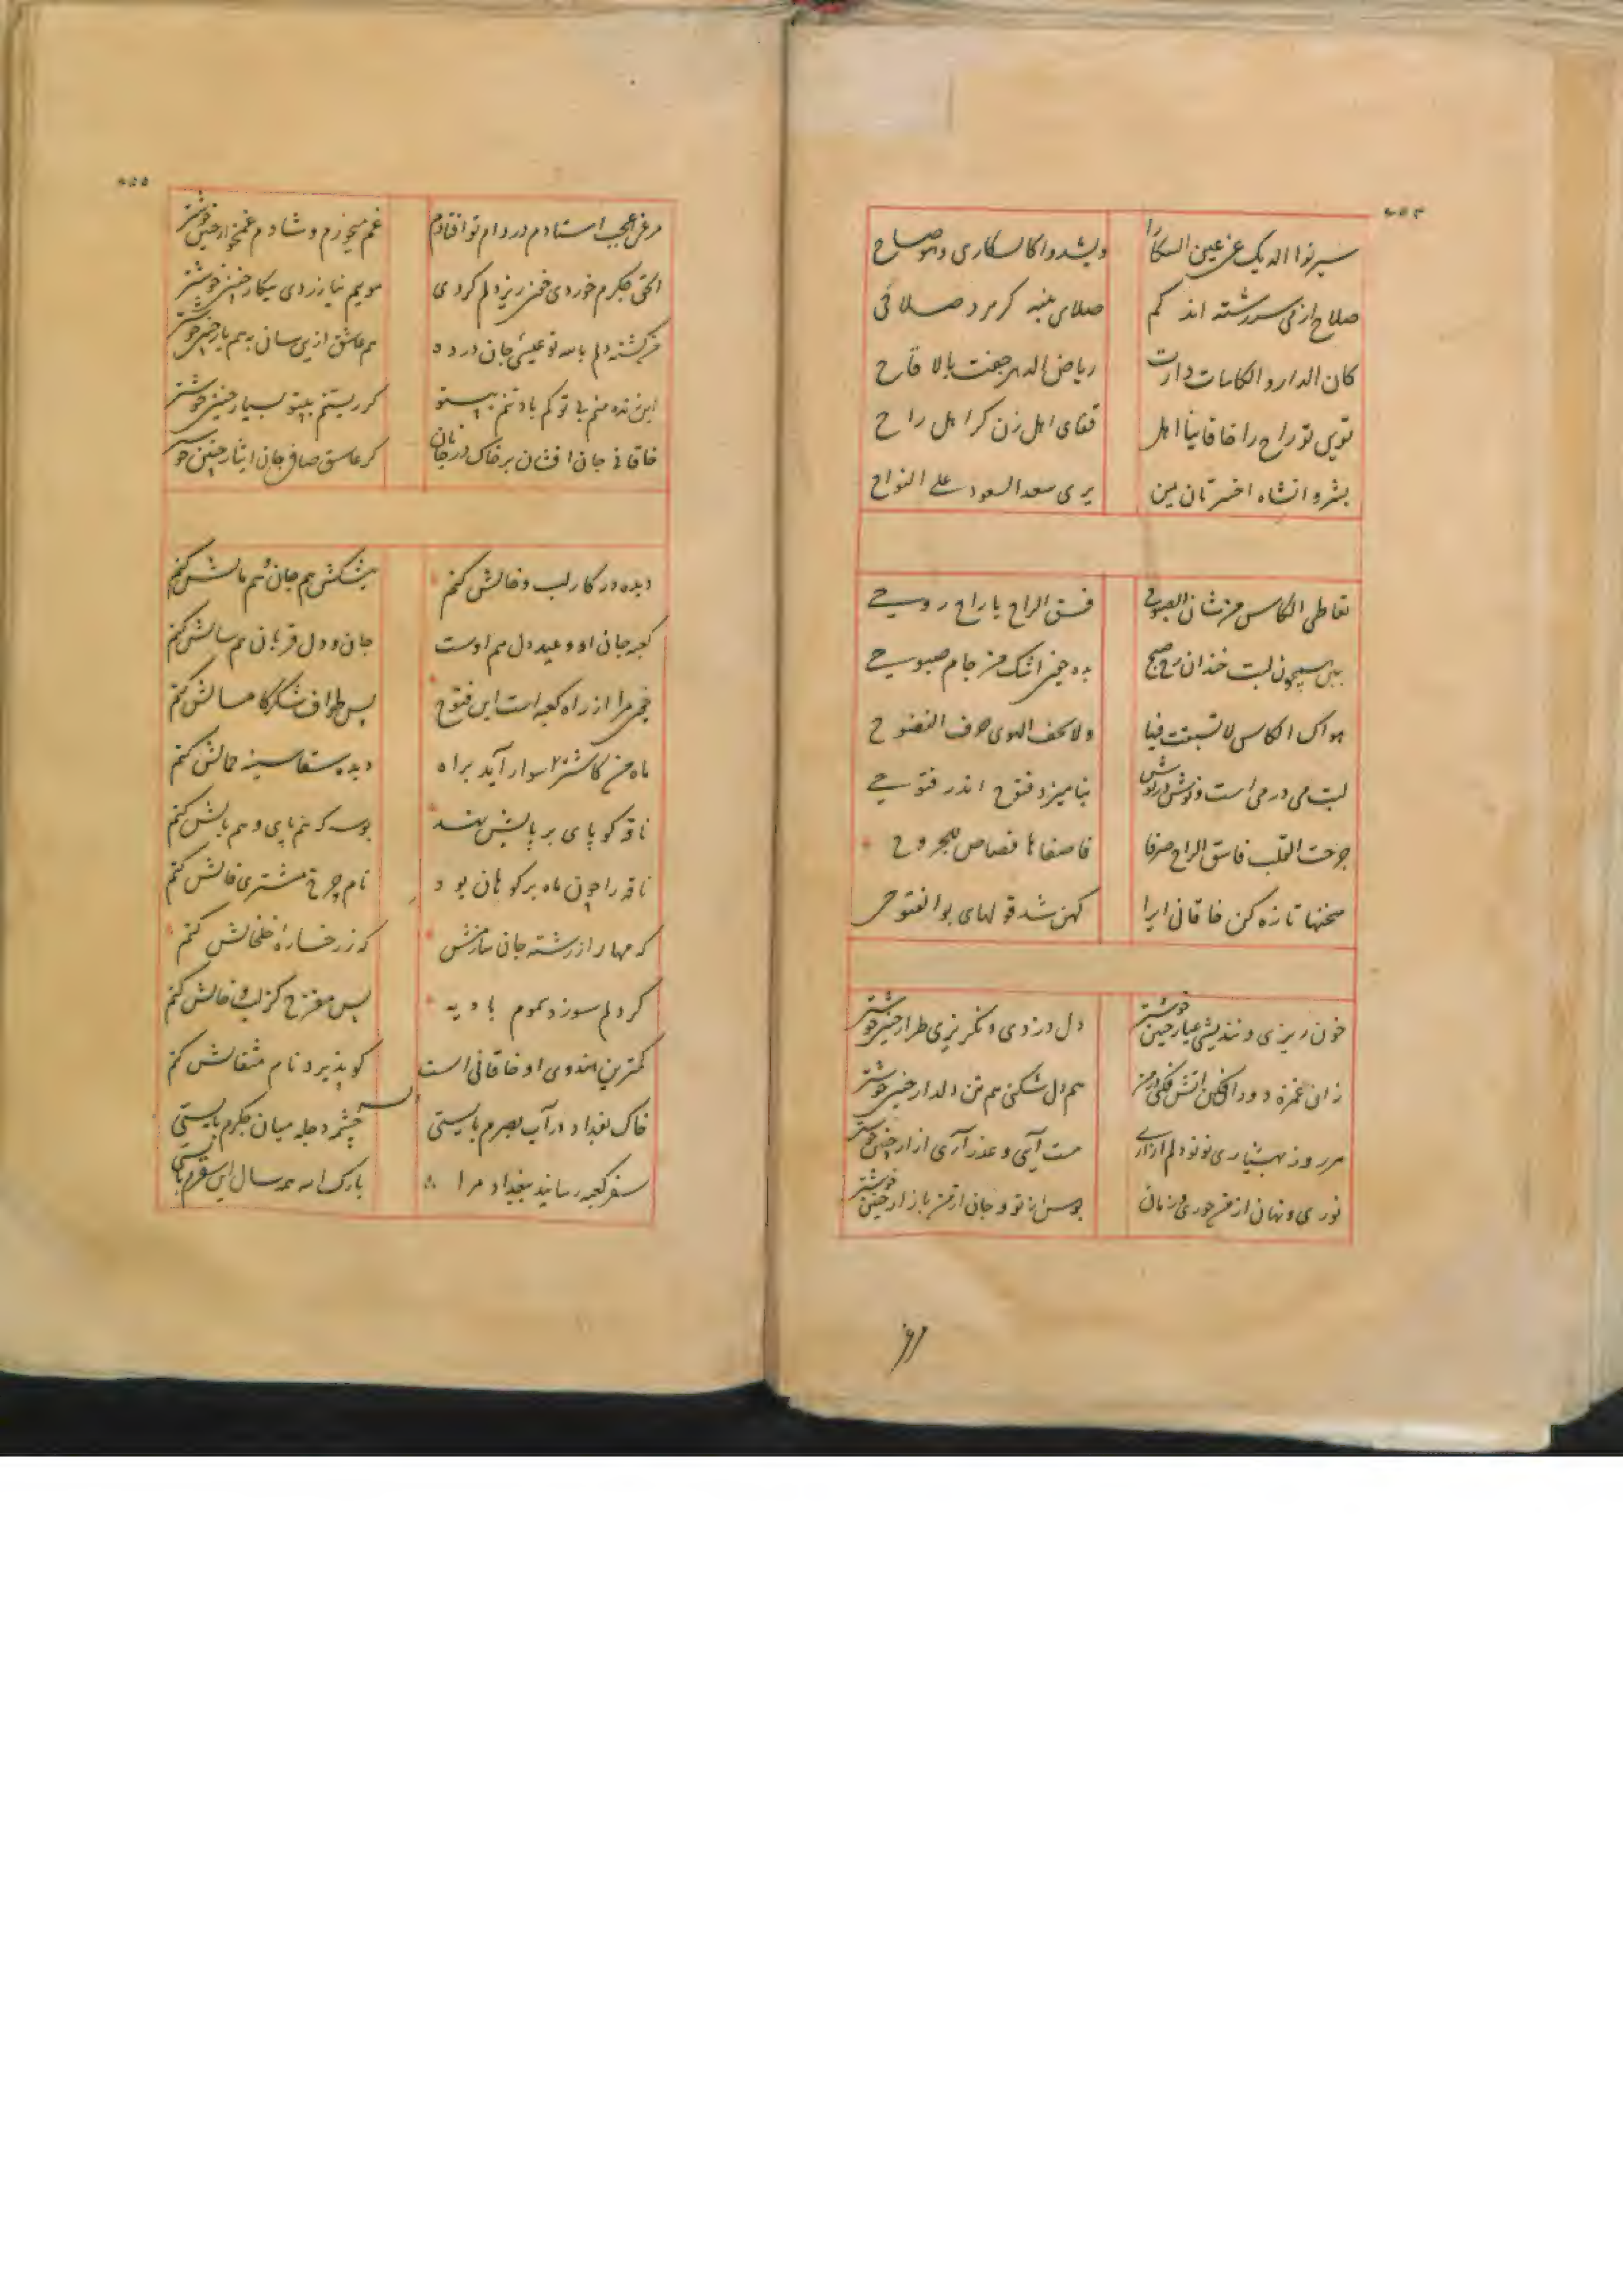 صلاح از می سرشته اند کم صلای پنبه کرم د صلا فی
کان الدار و الکاسات دارت ریاض الدهر حفت بالاقاح
تویی تو راح را خاقانیا اهل قفای اهل زن کر اهل راح
بشروانشاه اخستان بین یری سعد السعود علی النواح
تعاطی الکاس من شان الصبوح فسق الراح یا راح روحی
بده چون اشک من جام صبوحی
هواک الکاس لا تسبعت فیا
لبت می در می است و نوش در نوش نیامیزد فتوح اندر فتوحی
جرحت القلب فاسق الراح صرفا فاصفاها قصاص للجروح
سخنها تازه کن خاقانی ایرا کهن شد قولهای بوالفتوحی
خون ریزی و نندیشی عیار چنین خوشتر دل دزدی و نگریزی طرار چنین خوشتر
زان غمزه دود افکن آتش فکنی در من هم دل شکنی هم تن دلدار چنین خوشتر
هر روز بهشیاری نو نو دلم آزاری مست آیی و عذر آری آزار چنین خوشتر
نوری و نهان از من حوری و زمان بوس از تو و جان از من بازار چنین خوشتر
۶۵۵
مرغی عجب استادم در دام تو افتادم غم میخورم و شادم غمخوار چنین خوشتر
الحق جگرم خوردی خون ریز دلم کردی مویم نیازردی پیکار چنین خوشتر
هم عاشق ازین سان به هم یار چنین خوشتر
این زنده منم بی تو کم باد تنم بیتو کز زیستنم بیتو بسیار چنین خوشتر
خاقانی جان افشان بر خاک در جانان کز عاشق صافی جان ایثار چنین خو
دیده در کار لب و خالش کنم پیشکش هم جان و هم مالش کنم
کعبه جان او و عید دل هم اوست جان و دل قربان هم سالش کنم
مرا از راه کعبه است این فتوح پس طواف شکر کامسالش کنم
ماه من کاشتر سوار آید براه دیده سقا سینه حمالش کنم
ناقه کو پای بر پایش نهد بوسه که هم پای و هم بالش کنم
ناقه را چون ماه بر کوهان بود نام چرخ مشتری فالش کنم
که مهار از رشته جان سازمش که ز رخساره خلخالش کنم
گر دلم سوزد سموم بادیه پس مفرح کز لب و خالش کنم
کمترین هندوی او خاقانی است کو پذیرد نام مثقالش کنم
خاک بغداد در آب بصرم بایستی چشمه دجله میان جگرم بایستی
سفر کعبه رسانید ببغداد مرا بارک الله همه سال این سفرم بایستی